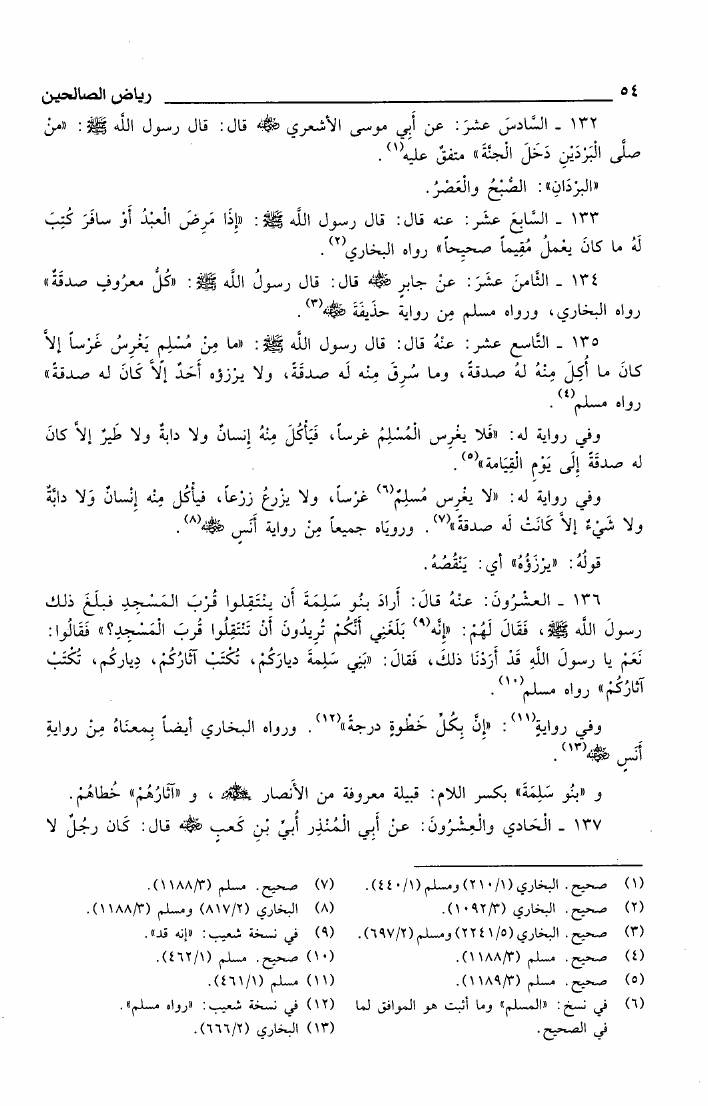 ٥٤ رياض الصالحين
١٣٢ ـ السَّادسَ عشَرَ: عن أَبي موسى الأشعري ﵁ قال: قال رسول اللَّه ﷺ: «منْ
صلَّى الْبَرْدَيْنِ دَخَلَ الْجنَّةَ» متفقٌ عليه(١).
«البرْدَانِ»: الصُّبْحُ والْعَصْرُ.
١٣٣ ـ السَّابعَ عشَر: عنه قال: قال رسول اللَّه ﷺ: «إِذَا مَرِضَ الْعبْدُ أَوْ سافَرَ كُتِبَ
لَهُ ما كانَ يعْملُ مُقِيماً صحيحاً» رواه البخاري(٢).
١٣٤ ـ الثَّامنَ عشَرَ: عنْ جابرٍ ﵁ قال: قال رسولُ اللَّه ﷺ: «كُلُّ معرُوفٍ صدقَةٌ»
رواه البخاري، ورواه مسلم مِن رواية حذَيفَةَ ﵁(٣).
١٣٥ ـ التَّاسع عشر: عنْهُ قال: قال رسول اللَّه ﷺ: «ما مِنْ مُسْلِمٍ يَغْرِسُ غَرْساً إلاَّ
كانَ ما أُكِلَ مِنْهُ لهُ صدقةً، وما سُرِقَ مِنْه لَه صدقَةً، ولا يرْزؤه أَحَدٌ إلَّا كَانَ له صدقةً»
رواه مسلم(٤).
وفي رواية له: «فَلا يغْرِس الْمُسْلِمُ غرساً، فَيَأْكُلَ مِنْهُ إِنسانٌ ولا دابةٌ ولا طَيرٌ إلاَّ كانَ
له صدقَةً إِلَى يَوْمِ الْقِيَامة»(٥).
وفي رواية له: «لا يغْرِس مُسلِمٌ(٦) غرْساً، ولا يزْرعُ زرْعاً، فيأْكُل مِنْه إِنْسانٌ وَلا دابَّةٌ
ولا شَيْءٌ إلاَّ كَانَتْ لَه صدقةً»(٧). ورويَاه جميعاً مِنْ رواية أَنَسٍ ﵁(٨).
قولُهُ: «يرْزَؤُهُ» أي: يَنْقُصُهُ.
١٣٦ ـ العشْرُونَ: عنْهُ قالَ: أَرادَ بنُو سَلِمَةَ أَن ينْتَقِلوا قُرْبَ المَسْجِدِ فبلَغَ ذلك
رسولَ اللَّه ﷺ، فَقَالَ لَهُمْ: «إِنَّه(٩) بَلَغَنِي أَنَّكُمْ تُرِيدُونَ أَنْ تَنْتَقِلُوا قُربَ الْمَسْجِدِ؟» فَقَالُوا:
نَعَمْ يا رسولَ اللَّهِ قَدْ أَرَدْنَا ذلكَ، فَقالَ: «بَنِي سَلِمةَ ديارَكُمْ، تُكتَبْ آثَارُكُمْ، دِياركُم، تُكْتَبْ
آثارُكُمْ» رواه مسلم(١٠).
وفي روايةٍ(١١): «إِنَّ بِكُلِّ خَطْوةٍ درجةً»(١٢). ورواه البخاري أيضاً بِمعنَاهُ مِنْ روايةِ
أَنَسٍ ﵁(١٣).
و «بنُو سَلِمَةَ» بكسر اللام: قبيلة معروفة من الأنصار ﵃، و «آثَارُهُمْ» خُطاهُمْ.
١٣٧ ـ الْحَادي والْعِشْرُونَ: عنْ أَبي الْمُنْذِر أُبيِّ بنِ كَعبٍ ﵁ قال: كَان رجُلٌ لا
(١) صحيح. البخاري (٢١٠/١) ومسلم (٤٤٠/١).
(٢) صحيح. البخاري (١٠٩٢/٣).
(٣) صحيح. البخاري (٢٢٤١/٥) ومسلم (٦٩٧/٢).
(٤) صحيح. مسلم (١١٨٨/٣).
(٥) صحيح. مسلم (١١٨٩/٣).
(٦) في نسخ: «المسلم» وما أثبت هو الموافق لما
في الصحيح.
(٧) صحيح. مسلم (١١٨٨/٣).
(٨) البخاري (٨١٧/٢) ومسلم (١١٨٨/٣).
(٩) في نسخة شعيب: «إنه قد».
(١٠) صحيح. مسلم (٤٦٢/١).
(١١) مسلم (٤٦١/١).
(١٢) في نسخة شعيب: «رواه مسلم».
(١٣) البخاري (٦٦٦/٢).